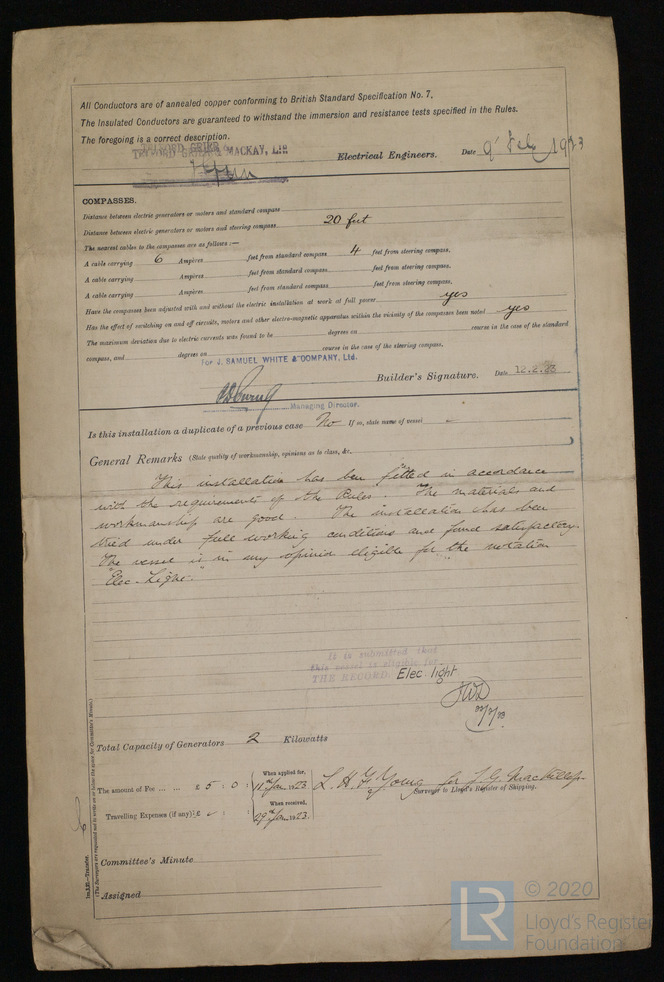 All Conductors are of annealed copper conforming to British Standard Specification No. 7.
The Insulated Conductors are guaranteed to withstand the immersion and resistance tests specified in the Rules.
The foregoing is a correct description.
TELFORD GRIER & MACKAY, LTD. Electrical Engineers. Date 9th Feb 1923
COMPASSES.
Distance between electric generators or motors and standard compass
Distance between electric generators or motors and steering compass 20 feet
The nearest cables to the compasses are as follows:—
A cable carrying 6 Ampères feet from standard compass 4 feet from steering compass.
A cable carrying Ampères feet from standard compass feet from steering compass.
A cable carrying Ampères feet from standard compass feet from steering compass.
Have the compasses been adjusted with and without the electric installation at work at full power yes
Has the effect of switching on and off circuits, motors and other electro-magnetic apparatus within the vicinity of the compasses been noted yes
The maximum deviation due to electric currents was found to be degrees on course in the case of the standard
compass, and degrees on course in the case of the steering compass.
For J. SAMUEL WHITE & COMPANY, Ltd.
Builder's Signature. Date 12.2.23
Managing Director.
Is this installation a duplicate of a previous case No If so, state name of vessel -
General Remarks (State quality of workmanship, opinions as to class, &c.
This installation has been fitted in accordance
with the requirements of the Rules. The materials and
workmanship are good. The installation has been
tried under full working conditions and found satisfactory.
The vessel is in my opinion eligible for the notation
"Elec. Light."
It is submitted that
this vessel is eligible for
THE RECORD. Elec. light
Total Capacity of Generators 2 Kilowatts
The amount of Fee ... ... £ 5 : 0 : When applied for, 11th Jan. 1923
L. H. F. Young for J. G. Mackillop
Surveyor to Lloyd's Register of Shipping.
Travelling Expenses (if any) £ : : When received, 29th Jan. 1923.
Committee's Minute
Assigned
Im.2.21.—Transfer.
(The Surveyors are requested not to write on or below the space for Committee's Minute.)
LR © 2020
Lloyd's Register
Foundation